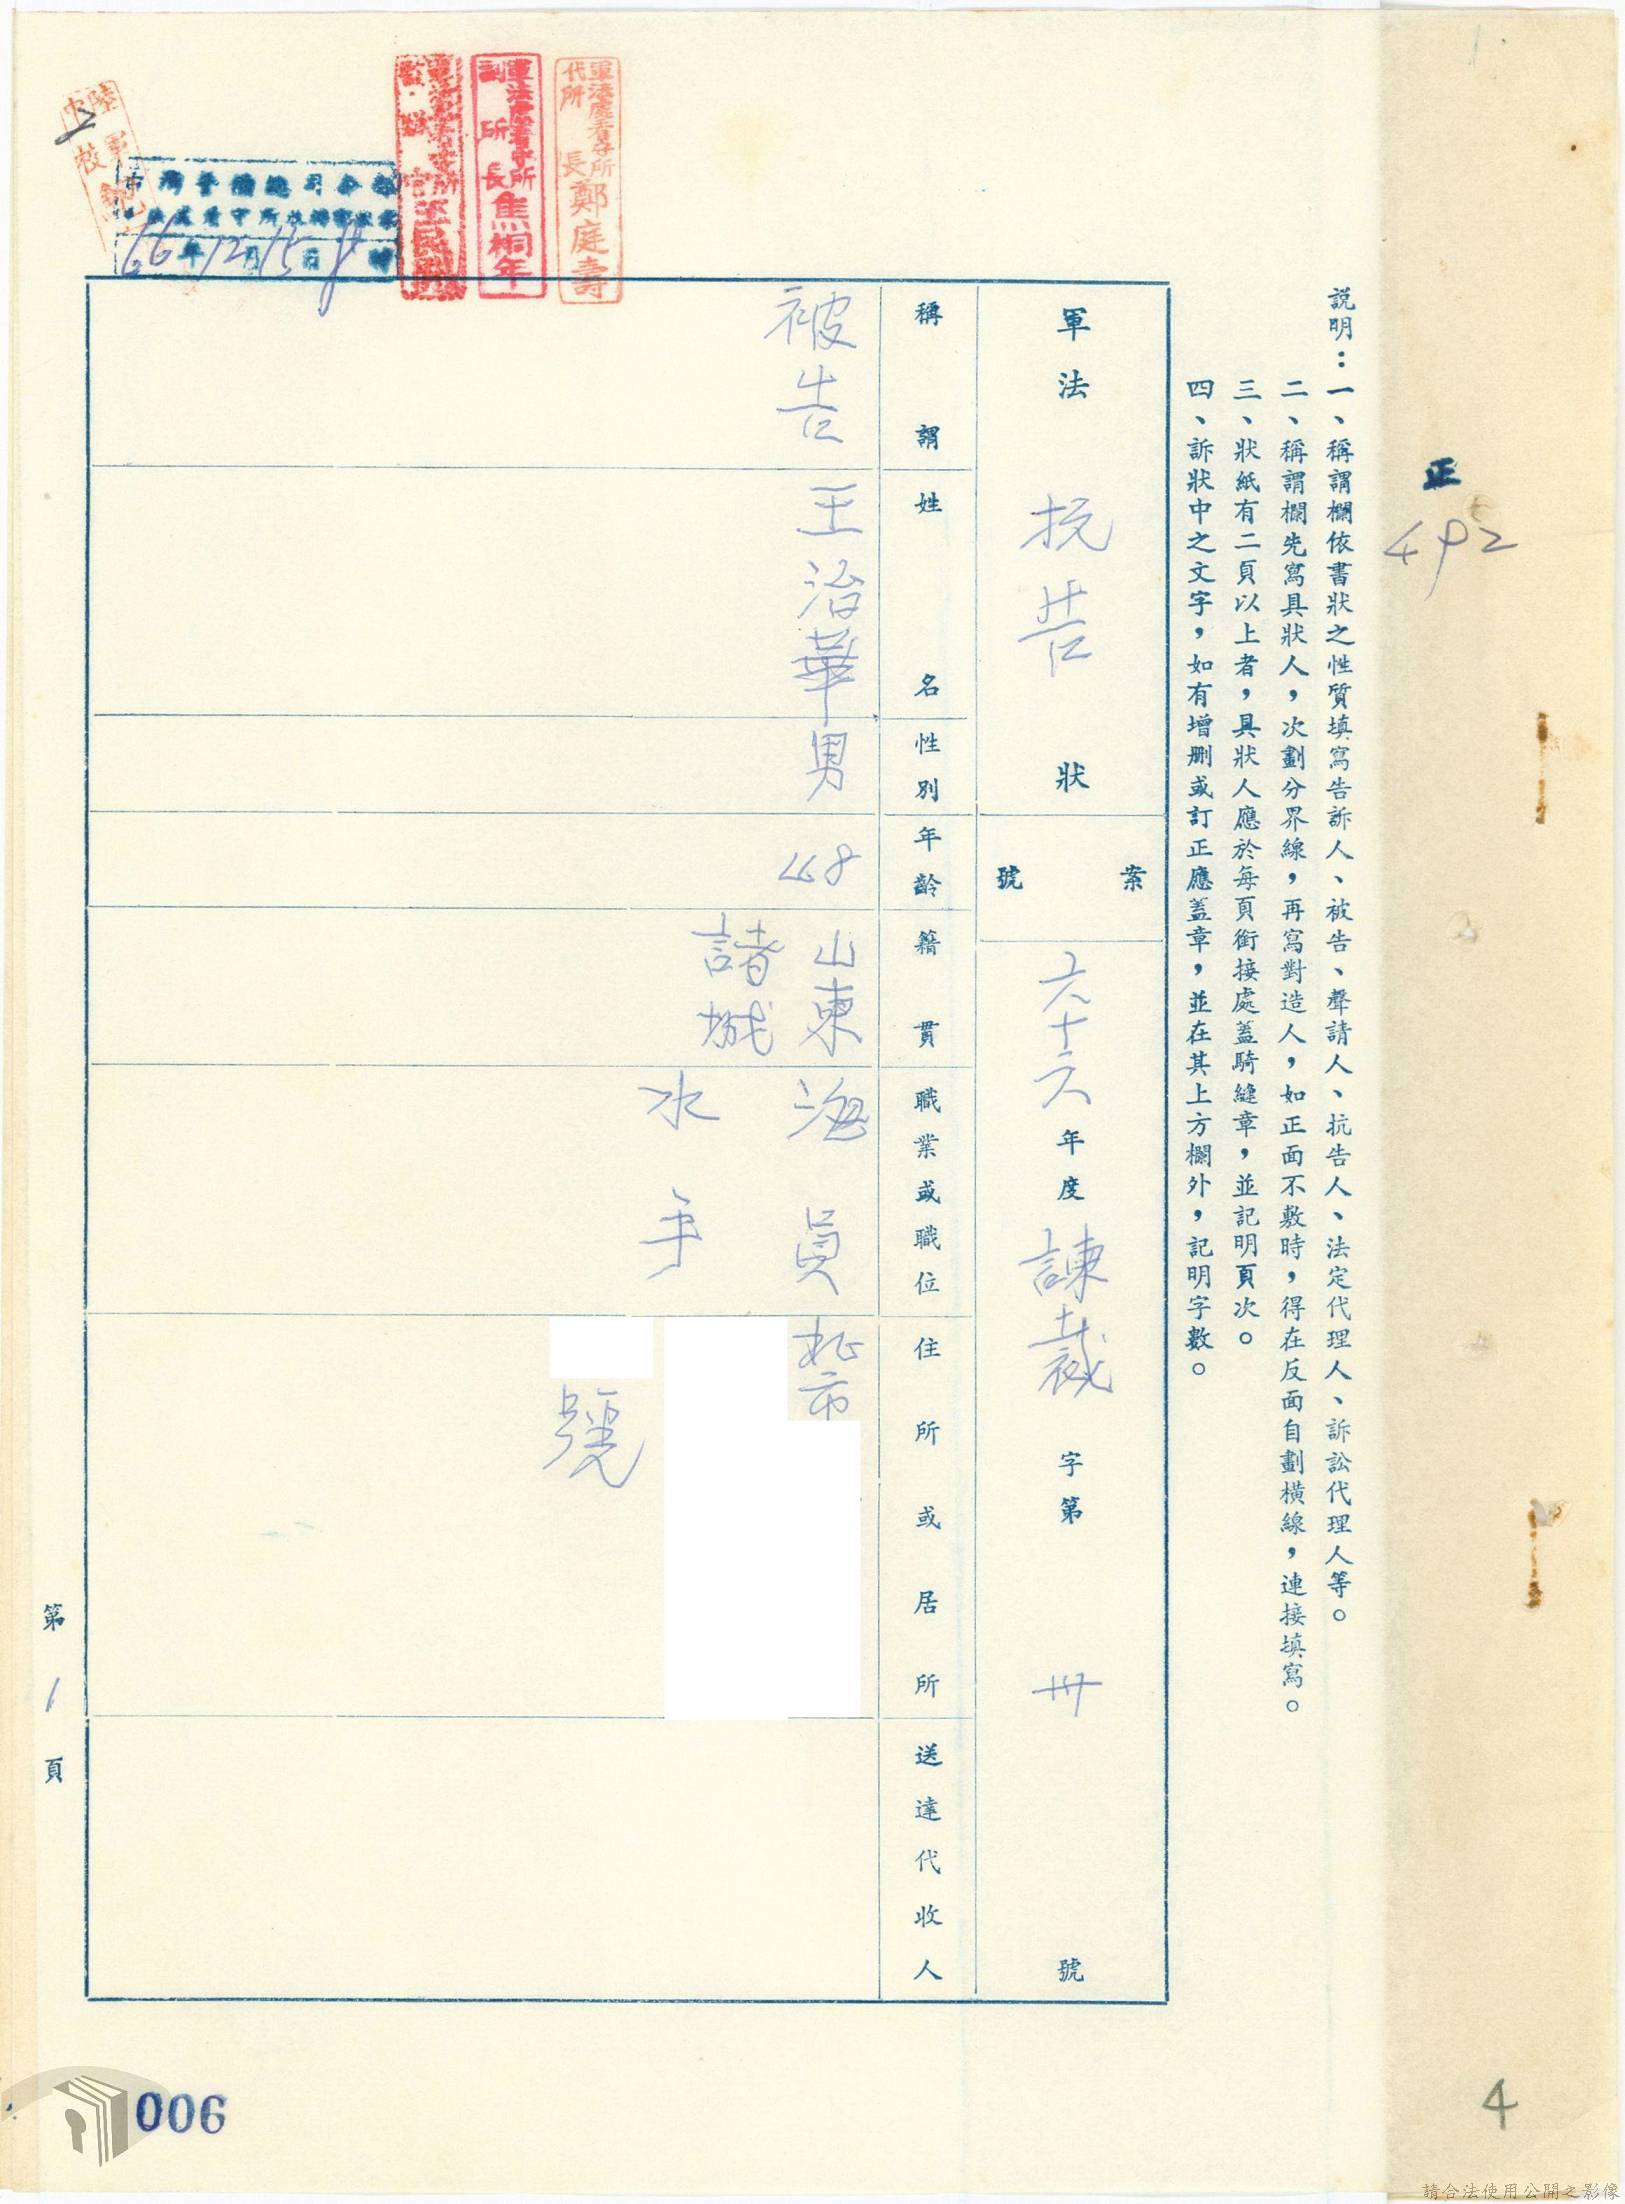 正
492
說明：一、稱謂欄依書狀之性質填寫告訴人、被告、聲請人、抗告人、法定代理人、訴訟代理人等。
二、稱謂欄先寫具狀人，次劃分界線，再寫對造人，如正面不敷時，得在反面自劃橫線，連接填寫。
三、狀紙有二頁以上者，具狀人應於每頁銜接處蓋騎縫章，並記明頁次。
四、訴狀中之文字，如有增刪或訂正應蓋章，並在其上方欄外，記明字數。
軍法 抗告 狀
案號
六十六年度諫裁字第卅號
稱謂
姓名
性別
年齡
籍貫
職業或職位
住所或居所
送達代收人
被告
王治華
男
48
山東
諸城
海員
水手
北市
號
軍法處看守所
代所長鄭庭壽
軍法處看守所
副所長焦桐年
台灣警備總司令部
66年12月15日
時
第1頁
006
4
請合法使用公開之影像